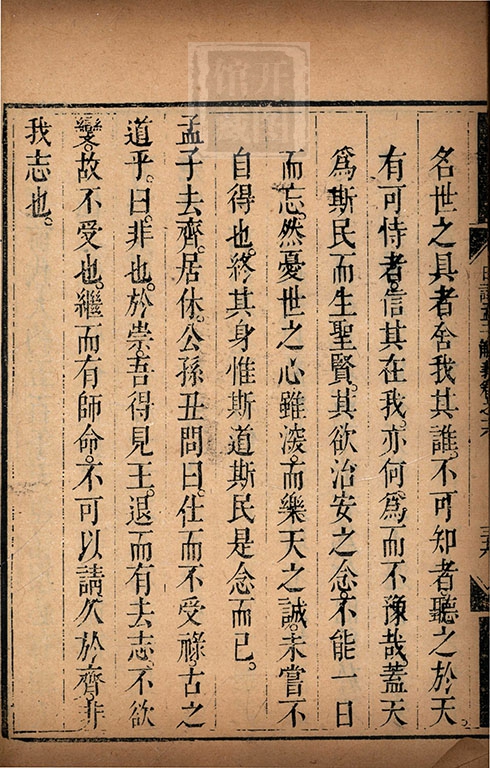 名世之具者舍我其誰。不可知者聽之於天。
有可恃者。信其在我。亦何爲而不豫哉。蓋天
爲斯民而生聖賢。其欲治安之念。不能一日
而忘。然憂世之心雖深。而樂天之誠。未嘗不
自得也。終其身惟斯道斯民是念而已。
孟子去齊。居休。公孫丑問曰。仕而不受祿。古之
道乎。曰。非也。於崇。吾得見王。退而有去志。不欲
變。故不受也。繼而有師命。不可以請。久於齊。非
我志也。